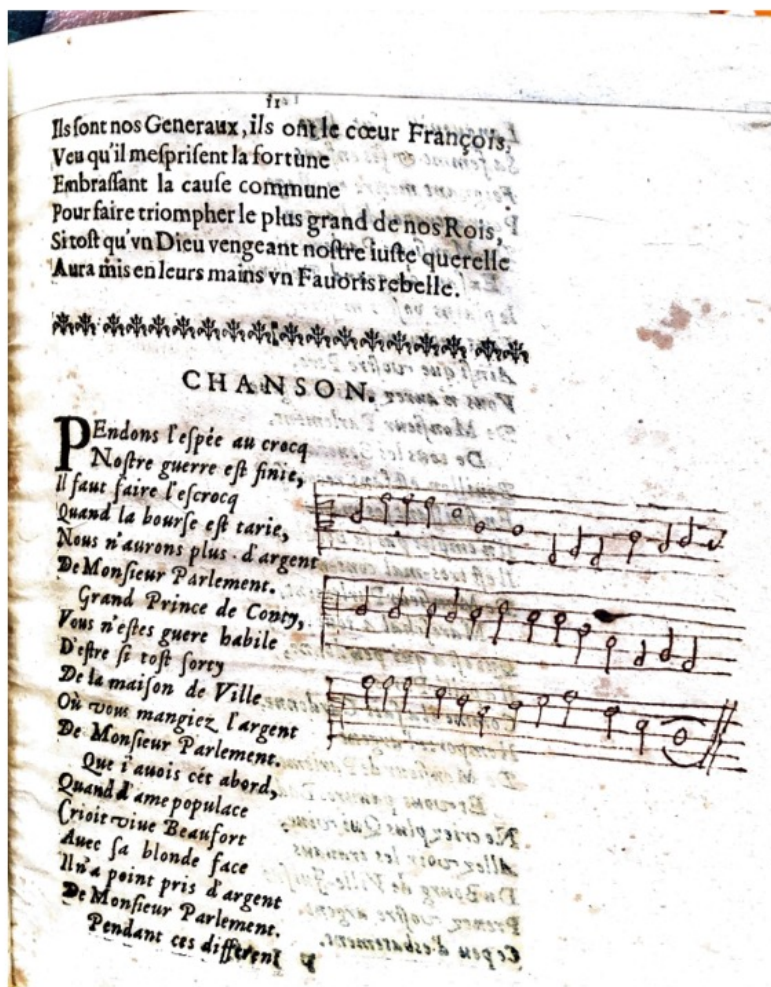 11
Ils ſont nos Generaux, ils ont le cœur François,
Veu qu'il meſpriſent la fortune
Embraſſant la cauſe commune
Pour faire triompher le plus grand de nos Rois,
Sitoſt qu'vn Dieu vengeant noſtre iuſte querelle
Aura mis en leurs mains vn Fauoris rebelle.
CHANSON.
PEndons l'eſpée au crocq
Noſtre guerre eſt finie,
Il faut faire l'eſcrocq
Quand la bourſe eſt tarie,
Nous n'aurons plus d'argent
De Monſieur Parlement.
Grand Prince de Conty,
Vous n'eſtes guere habile
D'eſtre ſi toſt ſorty
De la maiſon de Ville
Où vous mangiez l'argent
De Monſieur Parlement.
Que i'auois cét abord,
Quand d'ame populace
Crioit viue Beaufort
Auec ſa blonde face
Il n'a point pris d'argent
De Monſieur Parlement.
Pendant ces different